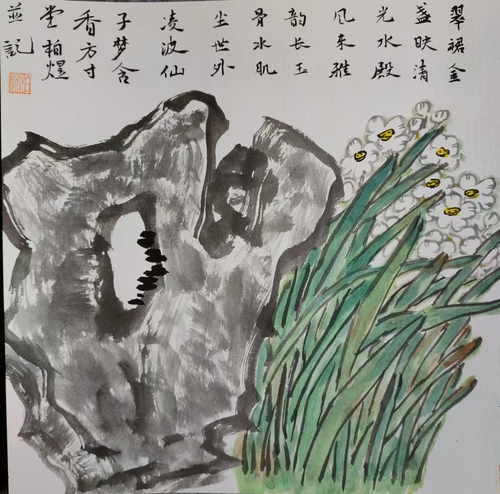 翠裙金
盏映清
光水殿
风来雅
韵长玉
骨氷肌
尘世外
凌波仙
子梦含
香方寸
堂柏煜
並記